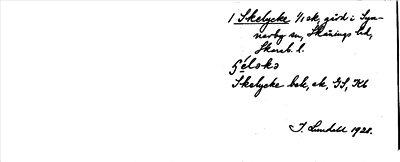 1 Skelycke 1/1 sk, gård i Syn-
nerby sn, Skånings hd,
Skarab. l.
Skelycke bok, ek, GS, Kb
J. Lundahl 1920.